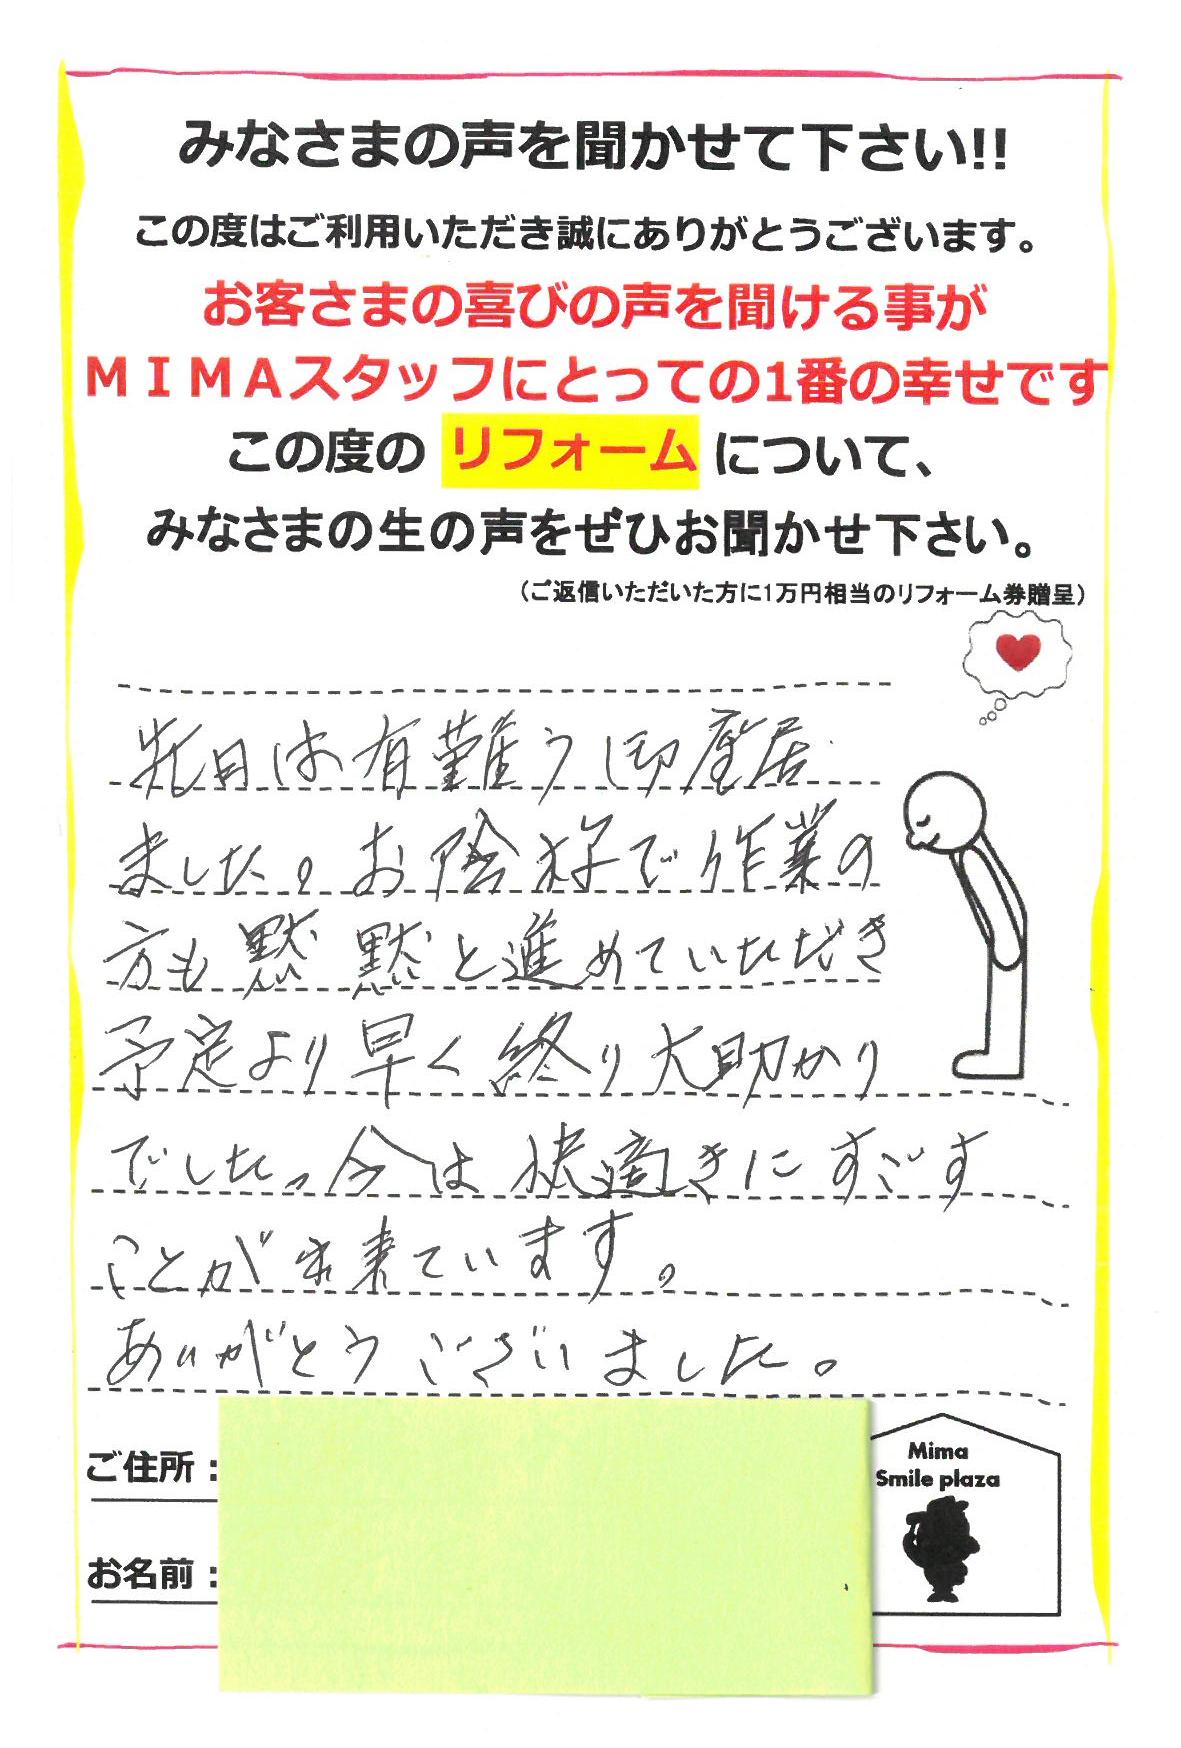 みなさまの声を聞かせて下さい!!
この度はご利用いただき誠にありがとうございます。
お客さまの喜びの声を聞ける事が
MIMAスタッフにとっての1番の幸せです
この度の リフォーム について、
みなさまの生の声をぜひお聞かせ下さい。
(ご返信いただいた方に1万円相当のリフォーム券贈呈)
先日は有難う御座居
ました。お陰様で作業の
方も黙黙と進めていただき
予定より早く終り大助かり
でした。今は快適きにすごす
ことが出来ています。
ありがとうございました。
ご住所:
お名前:
Mima
Smile plaza